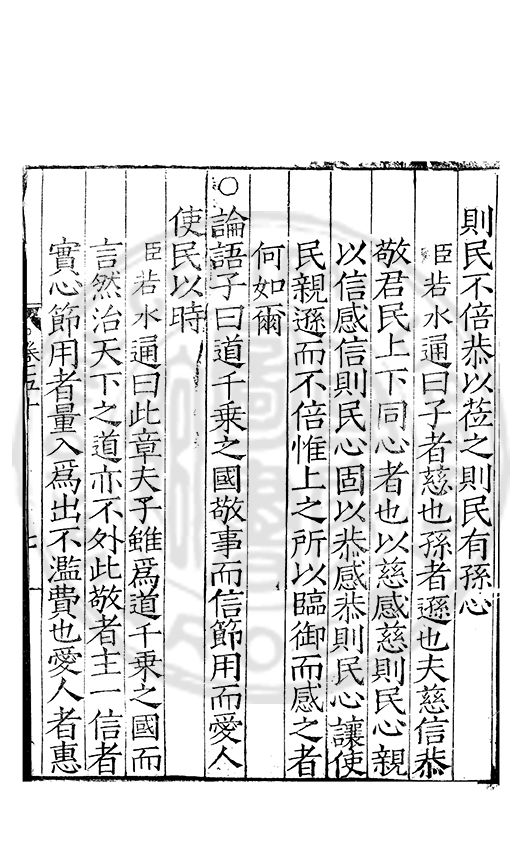 則民不倍恭以莅之則民有孫心
臣若水通曰子者慈也孫者遜也夫慈信恭
敬君民上下同心者也以慈感慈則民心親
以信感信則民心固以恭感恭則民心讓使
民親遜而不倍惟上之所以臨御而感之者
何如爾
○論語子曰道千乗之國敬事而信節用而愛人
使民以時
臣若水通曰此章夫子雖爲道千乗之國而
言然治天下之道亦不外此敬者主一信者
實心節用者量入爲出不濫費也愛人者惠
卷五十
七